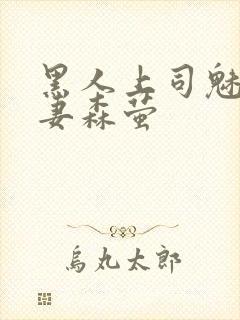 黑人上司魅
妻森萤
烏丸太郎